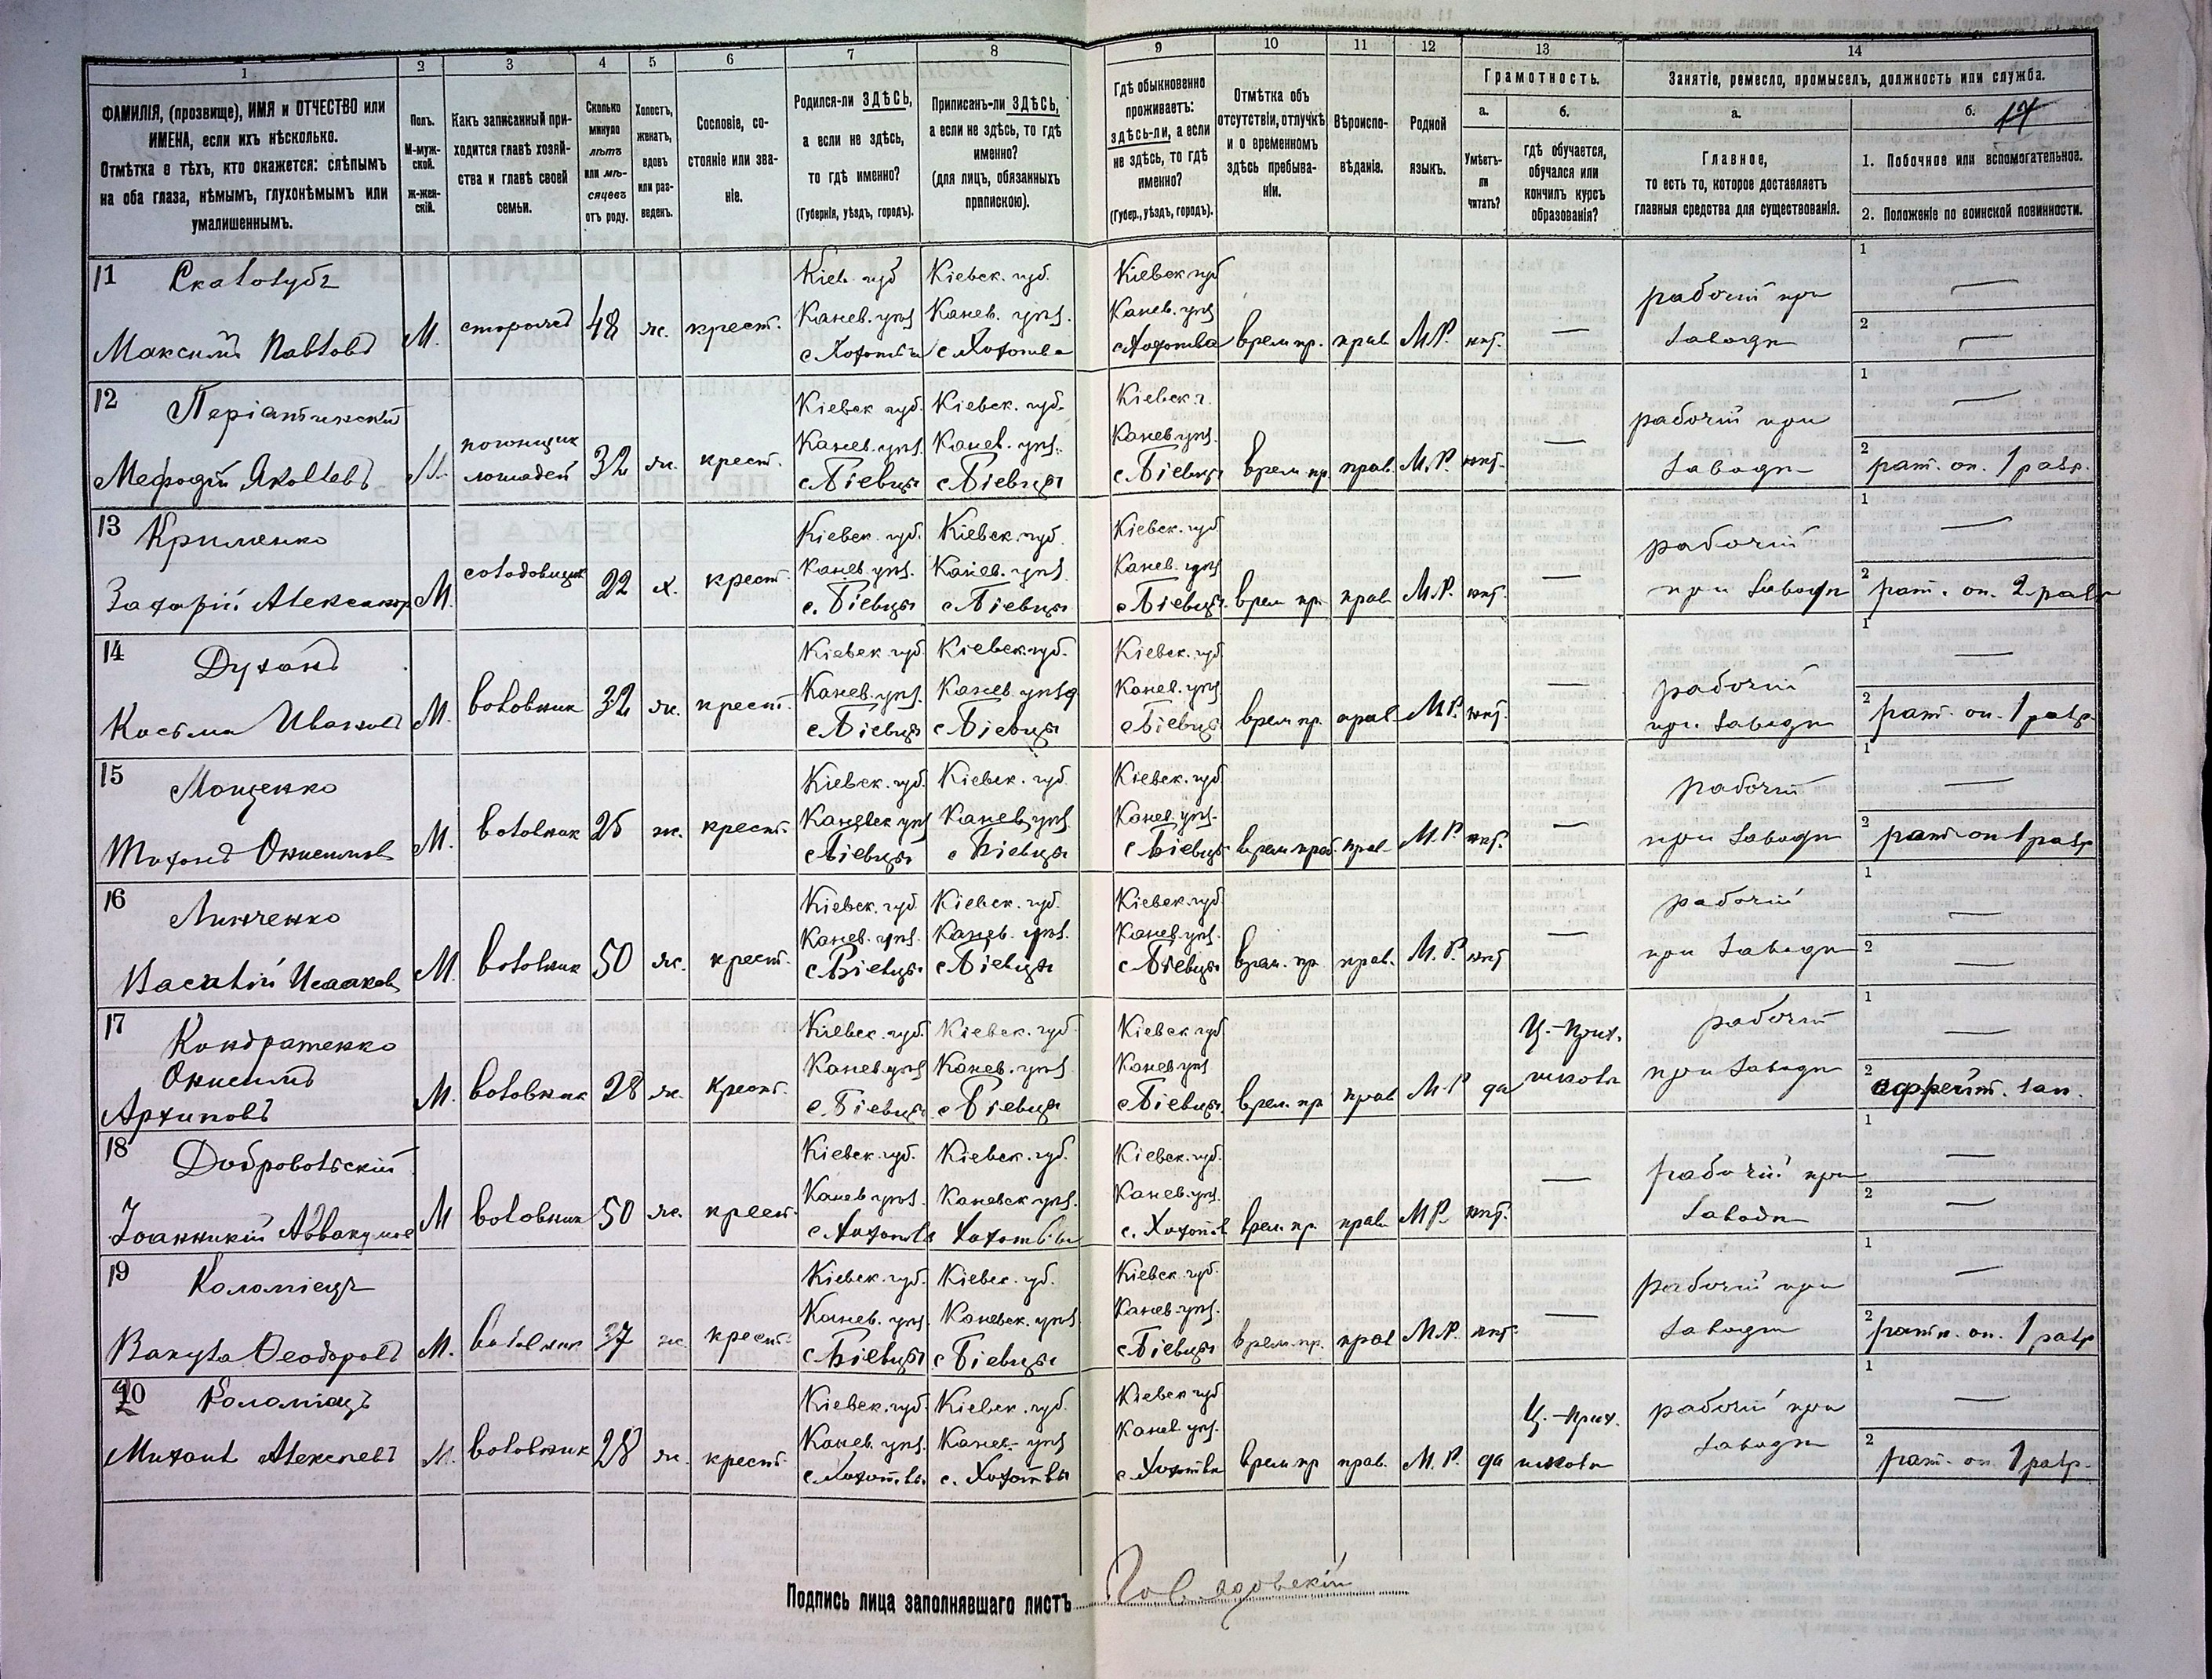 1 2 3 4 5 6 7 8 9 10 11 12 13 14
ФАМИЛІЯ, (прозвище), ИМЯ и ОТЧЕСТВО или
ИМЕНА, если ихъ нѣсколько.
Отмѣтка о тѣхъ, кто окажется: слѣпымъ
на оба глаза, нѣмымъ, глухонѣмымъ или
умалишеннымъ.
Полъ.
М-муж-
ской.
Ж-жен-
скій.
Какъ записанный при-
ходится главѣ хозяй-
ства и главѣ своей
семьи.
Сколько
минуло
лѣтъ
или мѣ-
сяцевъ
отъ роду.
Холостъ,
женатъ,
вдовъ
или раз-
веденъ.
Сословіе, со-
стояніе или зва-
ніе.
Родился-ли ЗДѢСЬ,
а если не здѣсь,
то гдѣ именно?
(Губернія, уѣздъ, городъ).
Приписанъ-ли ЗДѢСЬ,
а если не здѣсь, то гдѣ
именно?
(для лицъ, обязанныхъ
припискою).
Гдѣ обыкновенно
проживаетъ:
здѣсь-ли, а если
не здѣсь, то гдѣ
именно?
(Губер., уѣздъ, городъ).
Отмѣтка объ
отсутствіи, отлучкѣ
и о временномъ
здѣсь пребыва-
ніи.
Вѣроиспо-
вѣданіе.
Родной
языкъ.
Грамотность.
а.
Умѣетъ-
ли
читать?
б.
Гдѣ обучается,
обучался или
кончилъ курсъ
образованія?
Занятіе, ремесло, промыселъ, должность или служба.
а.
Главное,
то есть то, которое доставляетъ
главныя средства для существованія.
б. 17
1. Побочное или вспомогательное.
2. Положеніе по воинской повинности.
11 Кіев. губ Кіевск. губ. Кіевск губ 1 —
Канев. уѣз Канев. уѣз. Канев. уѣз рабочій при
Максимъ Павловъ М. сторожъ 48 ж. крест. с Хохотва с Хохотва с Хохотва врем пр. прав М.Р. нѣт. — заводѣ 2 —
12 Кіевск губ. Кіевск. губ. Кіевск г. 1 —
погонщик Канев. уѣз. Канев. уѣз. Канев уѣз. рабочій при
Мефодій Яковлевъ М. лошадей 32 ж. крест. с Біевцы с Біевцы с Біевцы врем пр. прав. М.Р. нѣт. — заводѣ 2 рат. оп. 1 разр.
13 Кіевск. губ. Кіевск. губ. Кіевск. губ 1 —
Клименко Канев. уѣз. Канев. уѣз. Канев. уѣз рабочій
Захарій Александр М. солодовщик 22 х. крест. с. Біевцы с Біевцы с Біевцы врем пр. прав М.Р. нѣт. — при заводѣ 2 рат. оп. 2 разр
14 Духанъ Кіевск губ. Кіевск губ. Кіевск. губ 1 —
Канев. уѣз. Канев. уѣзд Канев. уѣз рабочій
Косьма Ивановъ М. воловник 32 ж. крест. с Біевцы с Біевцы с Біевцы врем пр. прав М.Р. нѣт. — при заводѣ 2 рат. оп. 1 разр.
15 Мощенко Кіевск. губ. Кіевск. губ. Кіевск. губ 1 —
Каневск уѣз Канев. уѣз. Канев. уѣз. рабочій
Тихонъ Онисимов М. воловник 25 ж. крест. с Біевцы с Біевцы с Біевцы врем преб прав. М.Р. нѣт. — при заводѣ 2 рат оп 1 разр
16 Линченко Кіевск. губ. Кіевск. губ. Кіевск. губ 1 —
Канев. уѣз. Канев. уѣз. Канев. уѣз. рабочій
Василій Исааков М. воловник 50 ж. крест. с Біевцы с Біевцы с Біевцы врем. пр прав. М.Р. нѣт — при заводѣ 2 —
17 Кондратенко Кіевск. губ. Кіевск. губ. Кіевск губ Ц.-Прих. рабочій 1 —
Онисимъ Канев. уѣз Канев. уѣз. Канев уѣз школы при заводѣ
Архиповъ М. воловник 28 ж. Крест. с Біевцы с Біевцы с Біевцы врем. пр прав М.Р да 2 ефрейт. зап.
18 Добровольскій Кіевск. губ. Кіевск. губ. Кіевск. губ. 1 —
Канев уѣз. Каневск уѣз. Канев. уѣз. рабочій при
Іоанникій Аввакумов М воловник 50 ж. крест. с Хохотва Хохотвы с. Хохотв врем. пр. прав. МР. нѣт. — заводѣ 2 —
19 Коломіецъ Кіевск. губ. Кіевск. губ. Кіевск. губ. 1 —
Канев. уѣз. Каневск. уѣз Канев. уѣз. рабочій при
Вакула Ѳеодоровъ М. воловник 37 ж. крест. с Біевцы с Біевцы с Біевцы врем. пр. прав М.Р. нѣт. — заводѣ 2 ратн. оп. 1 разр
20 Коломіецъ Кіевск. губ. Кіевск. губ. Кіевск губ Ц.-прих. рабочій при 1 —
Канев. уѣз. Канев. уѣз Канев. уѣз. заводѣ
Михаилъ Алексѣевъ М. воловник 28 ж. крест. с Хохотвы с. Хохотвы с. Хохотвы врем пр прав. М.Р. да школы 2 рат. оп. 1 разр.
Подпись лица заполнявшаго листъ